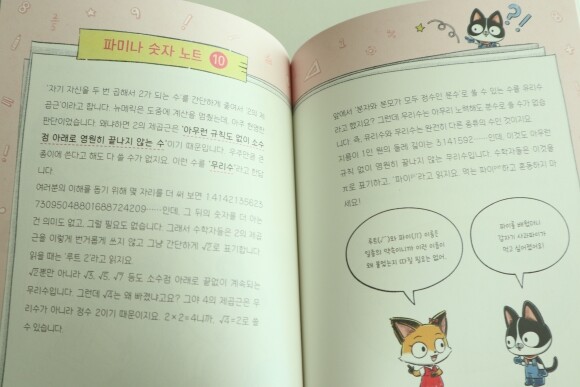 파미나 숫자 노트 10
'자기 자신을 두 번 곱해서 2가 되는 수'를 간단하게 줄여서 '2의 제
곱근'이라고 합니다. 뉴메락은 도중에 계산을 멈췄는데, 아주 현명한
판단이었습니다. 왜냐하면 2의 제곱근은 '아무런 규칙도 없이 소수
점 아래로 영원히 끝나지 않는 수'이기 때문입니다. 우주만큼 큰
종이에 쓴다고 해도 다 쓸 수가 없지요. 이런 수를 '무리수'라고 한답
니다.
여러분의 이해를 돕기 위해 몇 자리를 더 써 보면 1.4142135623
73095048801688724209……인데, 그 뒤의 숫자를 더 아는
건 의미도 없고, 그럴 필요도 없습니다. 그래서 수학자들은 2의 제곱
근을 이렇게 번거롭게 쓰지 않고 그냥 간단하게 √2로 표기합니다
읽을 때는 '루트 2'라고 읽지요.
√2뿐만 아니라 √3, √5, √7 등도 소수점 아래로 끝없이 계속되는
무리수입니다. 그런데 √4는 왜 빠졌냐고요? 그야 4의 제곱근은 무
리수가 아니라 정수 2이기 때문이지요. 2×2=4니까, √4=2로 쓸
수 있습니다.
앞에서 '분자와 분모가 모두 정수인 분수'로 쓸 수 있는 수를 유리수
라고 했지요? 그런데 무리수는 아무리 노력해도 분수로 쓸 수가 없습
니다. 즉, 유리수와 무리수는 완전히 다른 종류의 수인 것이지요.
지름이 1인 원의 둘레 길이는 3.141592……인데, 이것도 아무런
규칙이 없이 영원히 끝나지 않는 무리수입니다. 수학자들은 이것을
π로 표기하고, '파이'라고 읽지요. 먹는 파이와 혼동하지 마
세요!
루트(√)와 파이(π) 이름은
일종의 약속이니까 이런 이름이
왜 붙었는지 따질 필요는 없어.
파이를 배웠더니
갑자기 사과파이가
먹고 싶어졌어요!